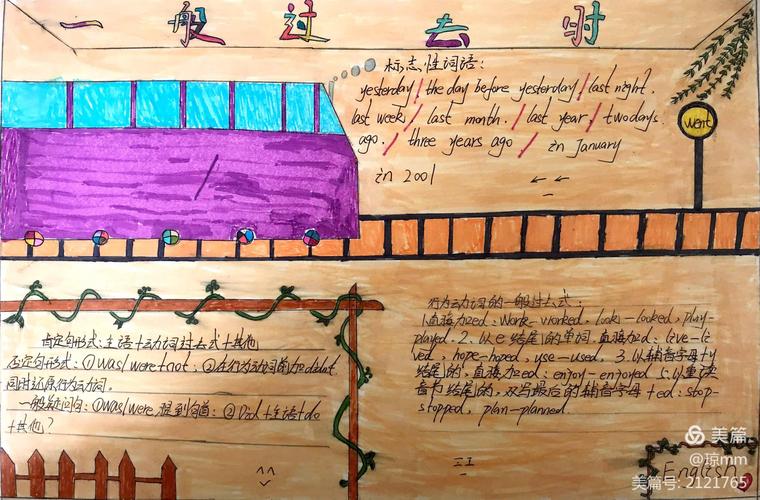 一般过去时
标志性词语:
yesterday / the day before yesterday / last night.
last week / last month. / last year / two days.
ago. / three years ago / in January
in 2001
went
肯定句形式:主语+动词过去式+其他
否定句形式:①was/were+not. ②在行为动词前加didn't
同时还原行为动词.
一般疑问句:①was/were提到句首;②Did+主语+do
+其他?
行为动词的一般过去式:
1.直接加ed: work-worked, look-looked, play-
played. 2.以e结尾的单词,直接加d: live-li
ved, hope-hoped, use-used. 3.以辅音字母+y
结尾的,直接加ed: enjoy-enjoyed 5.以重读
音节结尾的,双写最后的辅音字母+ed: stop-
stopped, plan-planned
English
美篇
@琼mm
美篇号: 2121765